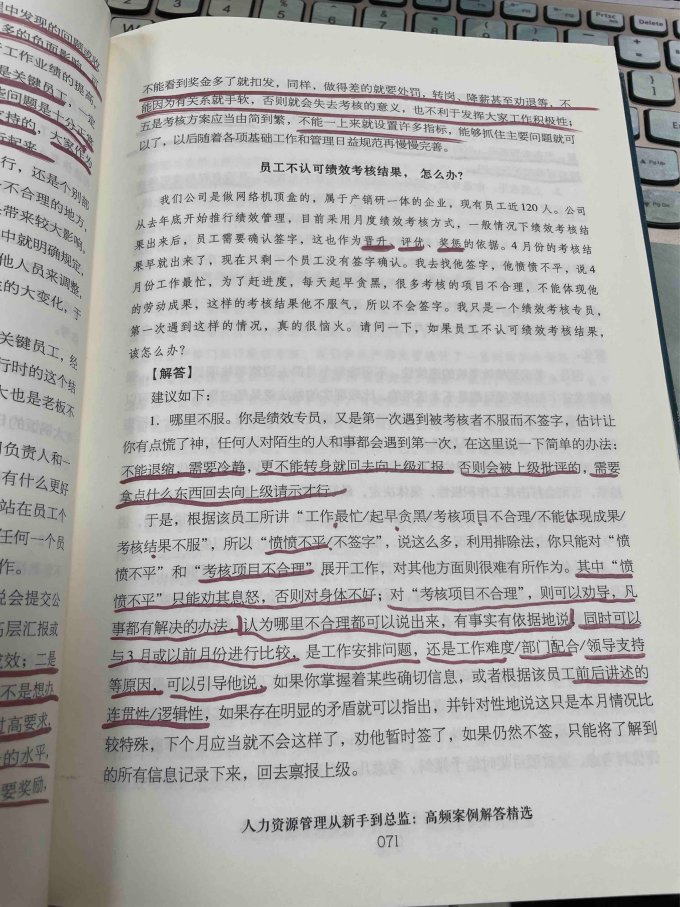 中发现的问题或效
多的负面影响，
工作业绩的提高，
是关键员工，一定
些问题是十分正常
支持的，大家作为
行起来。
行，还是个别部
一不合理的地方，
来带来较大影响。
中就明确规定，
他人员来调整，
性的大变化，于
关键员工，经
行时的这个结
大也是老板不
门负责人和一
有什么更好
站在员工个
任何一个员
作。
说会提交公
高层汇报或
成效；二是
不是想办
过高要求，
的水平，
要奖励，
不能看到奖金多了就扣发，同样，做得差的就要处罚，转岗、降薪甚至劝退等，不
能因为有关系就手软，否则就会失去考核的意义，也不利于发挥大家工作积极性；
五是考核方案应当由简到繁，不能一上来就设置许多指标，能够抓住主要问题就可
以了，以后随着各项基础工作和管理日益规范再慢慢完善。
员工不认可绩效考核结果，怎么办？
我们公司是做网络机顶盒的，属于产销研一体的企业，现有员工近120人。公司
从去年底开始推行绩效管理，目前采用月度绩效考核方式，一般情况下绩效考核结
果出来后，员工需要确认签字，这也作为晋升、评优、奖惩的依据。4月份的考核结
果早就出来了，现在只剩一个员工没有签字确认。我去找他签字，他愤愤不平，说4
月份工作最忙，为了赶进度，每天起早贪黑，很多考核的项目不合理，不能体现他
的劳动成果，这样的考核结果他不服气，所以不会签字。我只是一个绩效考核专员，
第一次遇到这样的情况，真的很恼火。请问一下，如果员工不认可绩效考核结果，
该怎么办？
【解答】
建议如下：
1. 哪里不服。你是绩效专员，又是第一次遇到被考核者不服而不签字，估计让
你有点慌了神，任何人对陌生的人和事都会遇到第一次，在这里说一下简单的办法：
不能退缩，需要冷静，更不能转身就回去向上级汇报，否则会被上级批评的，需要
拿点什么东西回去向上级请示才行。
于是，根据该员工所讲“工作最忙/起早贪黑/考核项目不合理/不能体现成果/
考核结果不服”，所以“愤愤不平/不签字”，说这么多，利用排除法，你只能对“愤
愤不平”和“考核项目不合理”展开工作，对其他方面则很难有所作为。其中“愤
愤不平”只能劝其息怒，否则对身体不好；对“考核项目不合理”，则可以劝导，凡
事都有解决的办法，认为哪里不合理都可以说出来，有事实有依据地说，同时可以
与3月或以前月份进行比较，是工作安排问题，还是工作难度/部门配合/领导支持
等原因，可以引导他说。如果你掌握着某些确切信息，或者根据该员工前后讲述的
连贯性/逻辑性，如果存在明显的矛盾就可以指出，并针对性地说这只是本月情况比
较特殊，下个月应当就不会这样了，劝他暂时签了，如果仍然不签，只能将了解到
的所有信息记录下来，回去禀报上级。
人力资源管理从新手到总监：高频案例解答精选
071
PrtSc
Delete